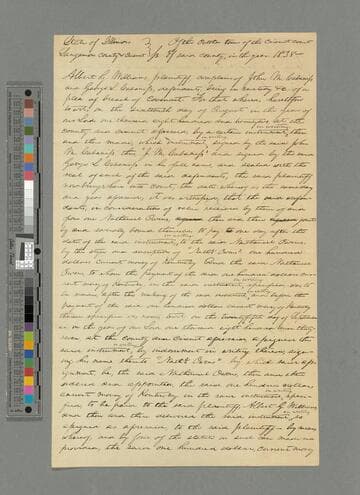 State of Illinois } Of the October term of the circuit court
Sangamon county & circuit } ss of said county, in the year 1838
Albert G. Williams, plaintiff, complains of John M. Cabaniss
and George L. Cabaniss, defendants, being in custody &c. of a
plea of breach of covenant. For that whereas heretofore
to wit, on the sixteenth day of August in the year of
our Lord one thousand eight hundred and
county and circuit aforesaid by a certain instrument, then
and there made, which instrument, signed by the said John
M. Cabaniss thus J. M. Cabaniss and signed by the said
George L. Cabaniss in his full name, and sealed with the
seal of each of the said defendants, the said plaintiff
now brings here into court, the date whereof is the same day
and year aforesaid, it is witnessed, that the said defen-
dants, in consideration of value received by them of and
from one Nathaniel Owens, then and there
and severally bound themselves, to pay to one day after the
date of the said instrument, to the said Nathaniel Owens
by the style and description of one hundred
dollars current money of Kentucky
Owens, to whom the payment of the said one hundred dollars cur-
rent money of Kentucky in the said instrument, specified was to
be made, after the making of the said instrument, and before the
payment of the said one hundred dollars current money of Kentucky
therein specified
in the year of our Lord one thousand eight hundred and thirty
at the county and circuit aforesaid assigned the
said instrument, by indorsement in writing thereon sign-
ing his name thereto by which said as-
signment, he, the said Nathaniel Owens, then and there
ordered and appointed the said one hundred dollars
current money of Kentucky in the said instrument, speci-
fied, to be paid to the said plaintiff, Albert G. Williams
and then and there delivered the said instrument, so
assigned as aforesaid to the said plaintiff—by means
whereof, and by force of the statute in such case made and
provided, the said one hundred dollars, current money